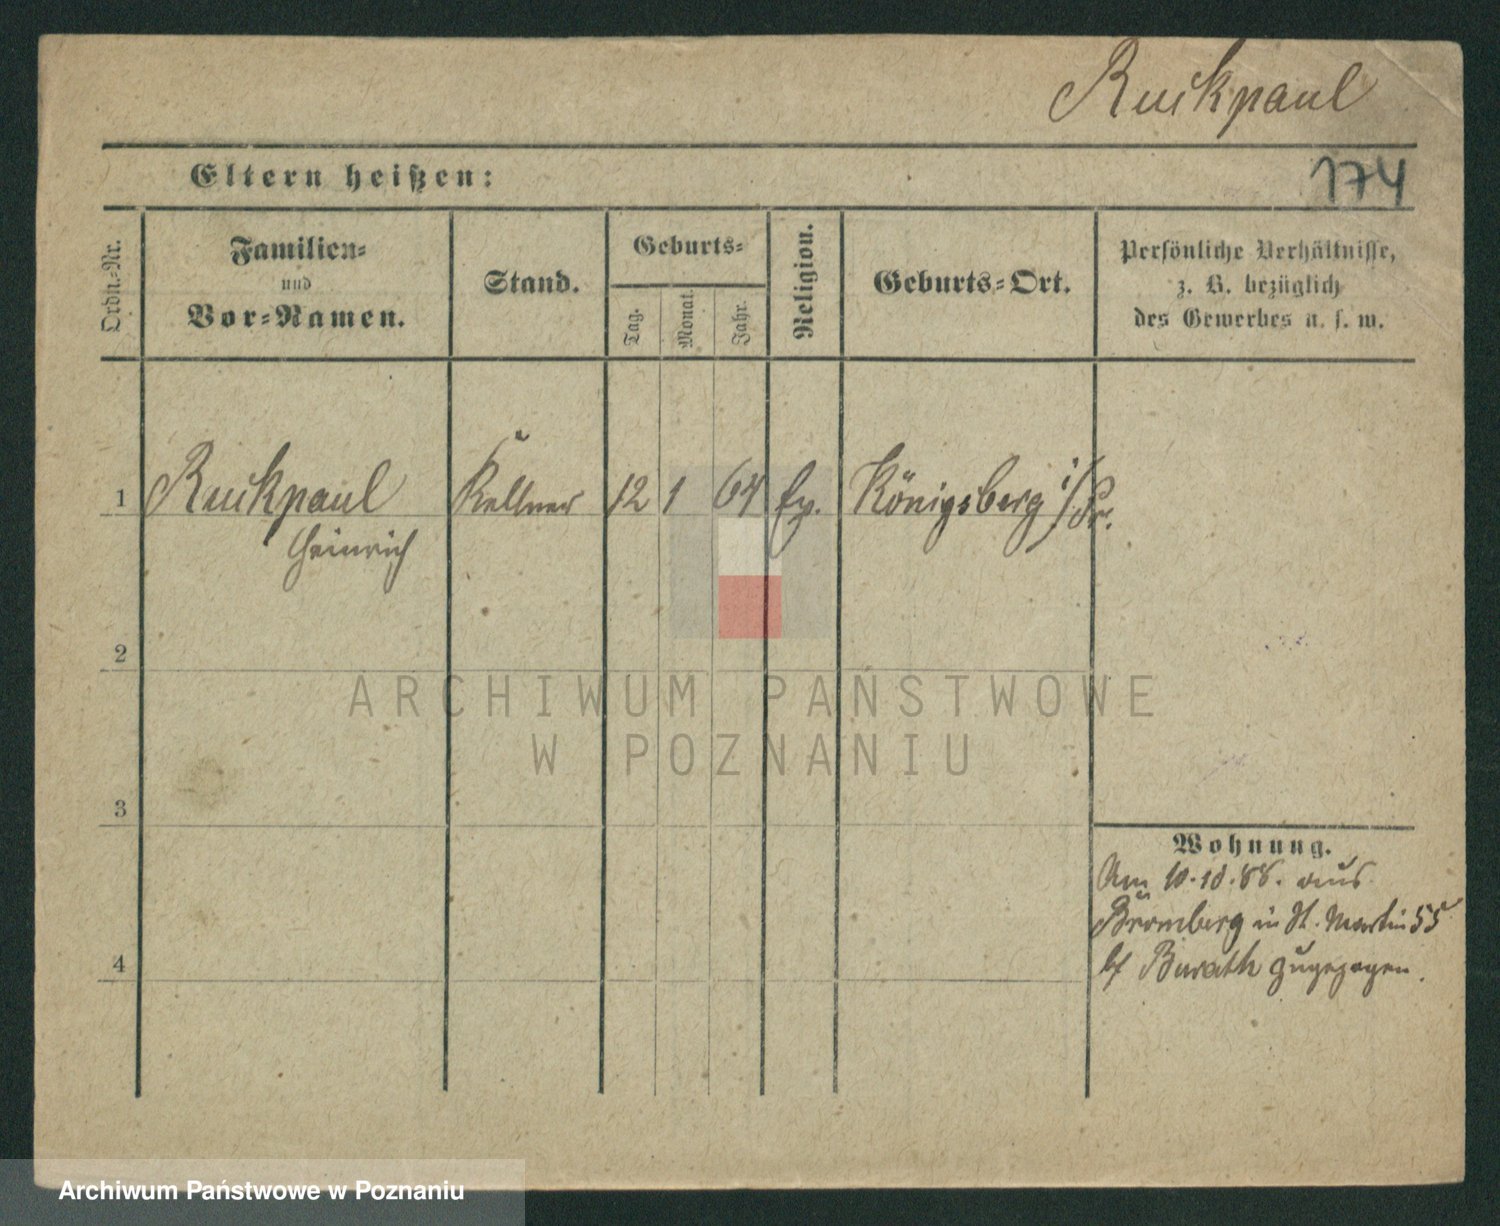 Ruckpaul
174
Eltern heißen:
Ordn.-Nr.
Familien-
und
Vor-Namen.
Stand.
Geburts-
Tag.
Monat.
Jahr.
Religion.
Geburts-Ort.
Persönliche Verhältnisse,
z. B. bezüglich
des Gewerbes u. s. w.
1 Ruckpaul Kellner 12 1 64 Ev. Königsberg i/Pr.
Heinrich
2
ARCHIWUM PAŃSTWOWE
W POZNANIU
3
Wohnung.
Am 10.10.88. aus
Bromberg in St. Martin 55
bei Burath zugezogen.
4
Archiwum Państwowe w Poznaniu